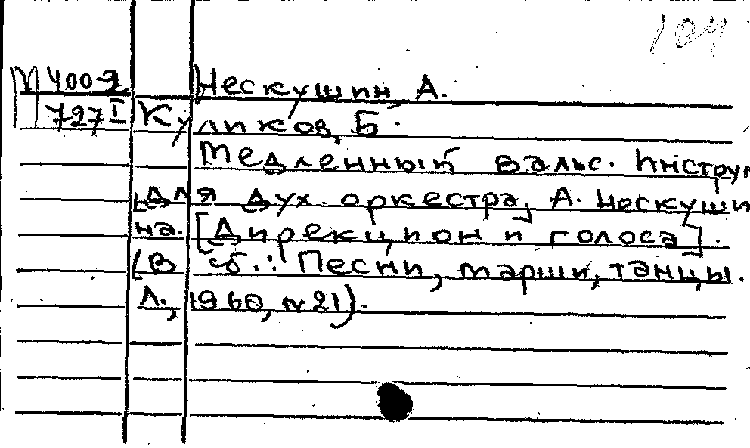 104
М 400-2 Нескушин А.
727 I Куликов, Б.
Медленный вальс. Инструм
для дух. оркестра, А. Нескуши
на. [Дирекцион и голоса].
(В сб.: Песни, марши, танцы.
Л., 1960, №21).